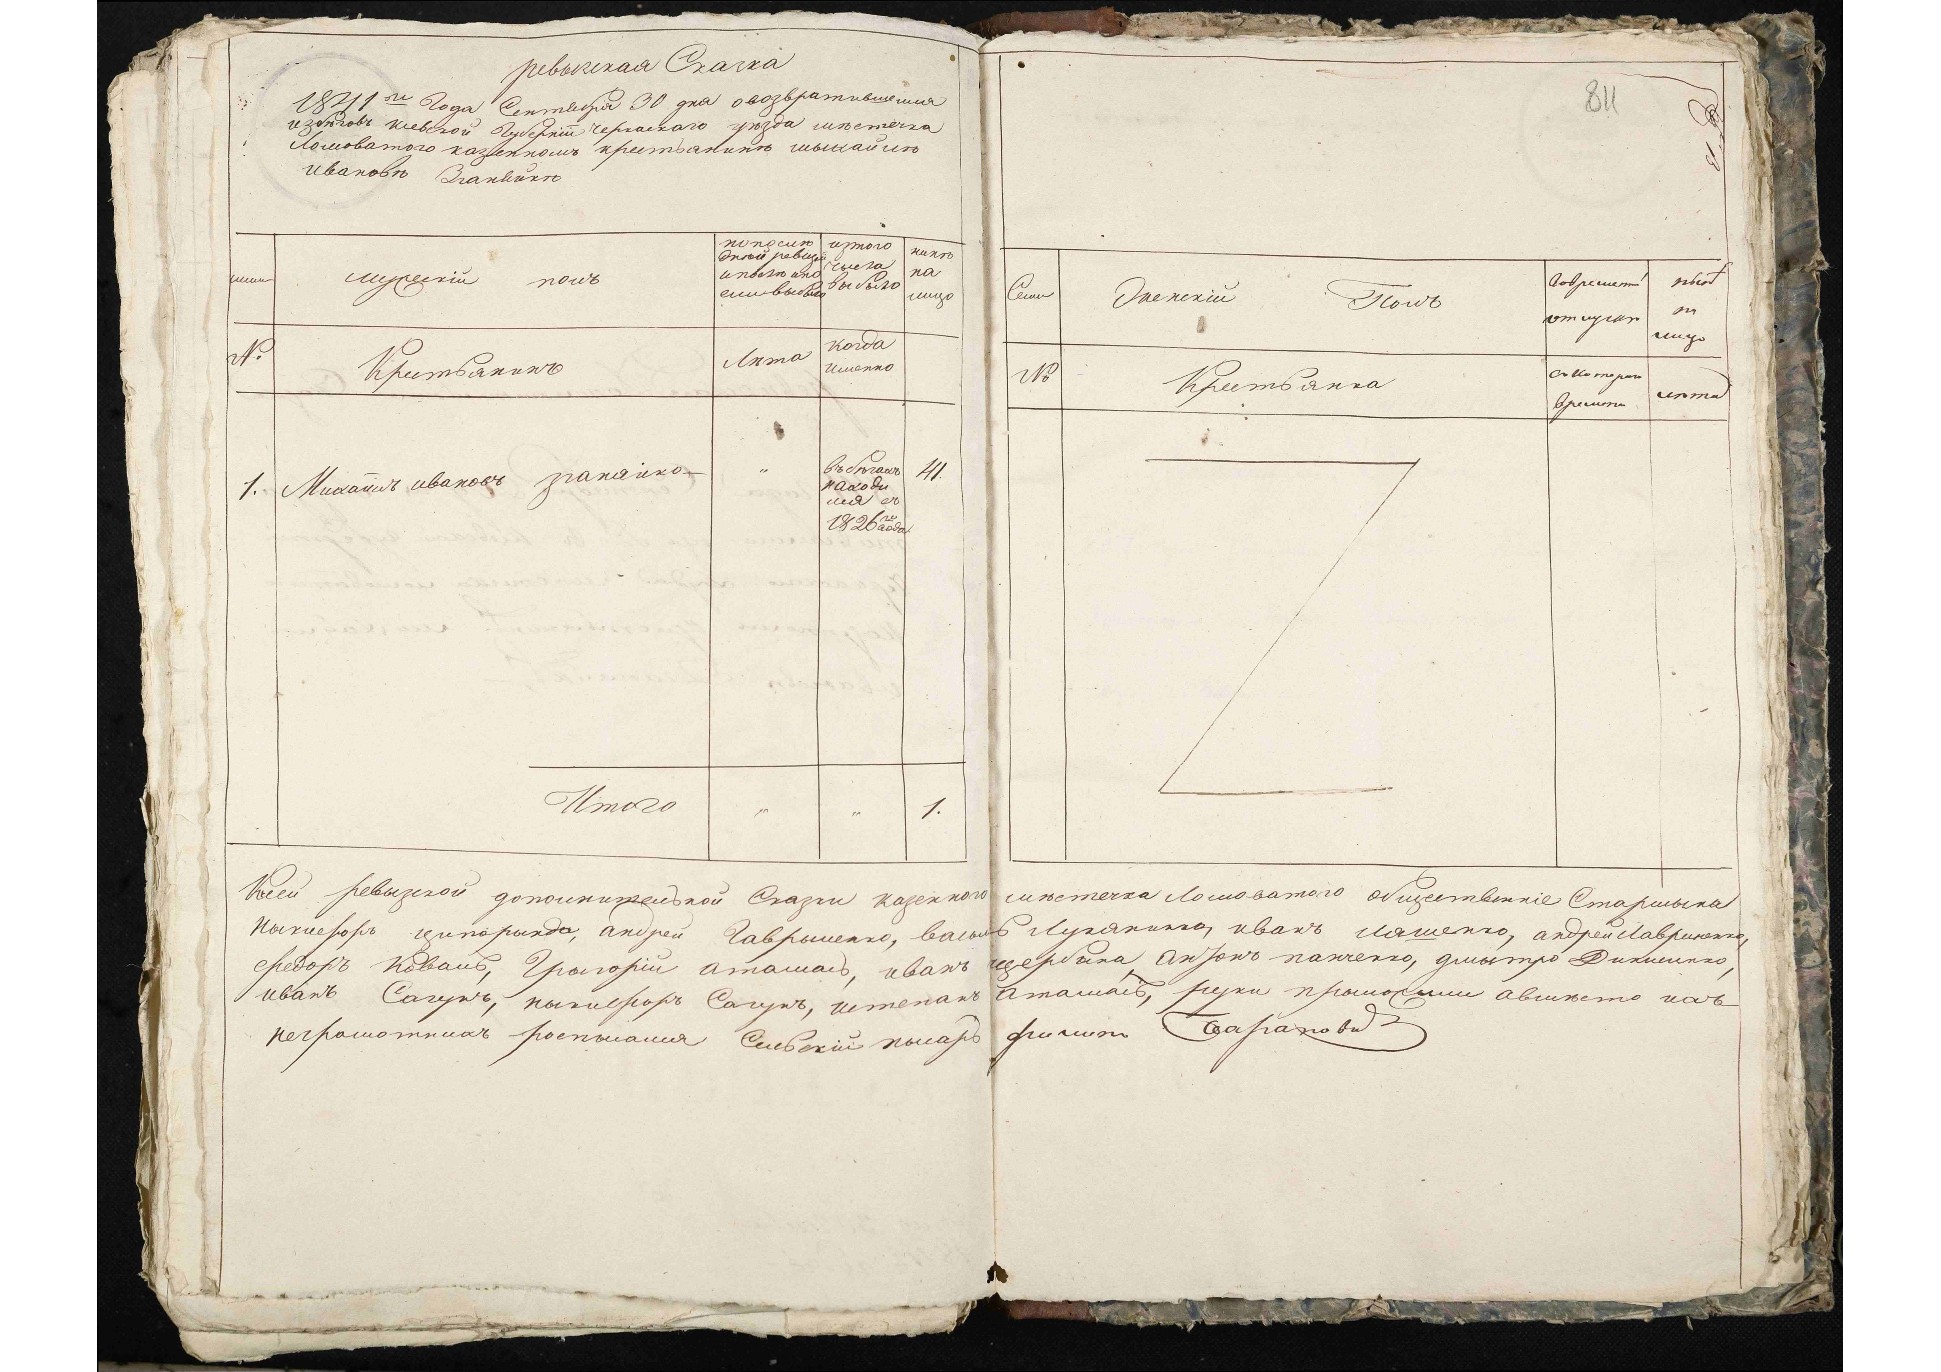 ревызская Сказка
1841го Года Сентября 30 дня овозвратившемся
избегов Киевской Губернїи Черкаскаго уезда местечка
Ломоватого казенном крестьянине мыхайле
иванове Зганяйке
мужескїй полъ
попосле
дней ревизїи
ипосле ино
сливыбыло
изтого
числа
выбыло
ныне
на
лицо
№.
Крестьянинъ
Лета
когда
именно
1. Михаилъ ивановъ зганяйко
"
въбегахъ
находи
лся съ
1826го года
41.
Итого " " 1.
811
Семьи
Женскїй Полъ
Вовременной
отлучке
ныне
на
лицо
№
Крестьянка
скотораго
времени
лета
Ксей ревызской дополнительной Сказки казенного местечка Ломоватого общественнїе Старшына
ныкифоръ ципорында, андрей Гаврыленко, василь Лукянинко, иванъ Ляшенко, андрей Лавриненко,
федоръ Коваль, Грыгорїй аташаль, иванъ щербина, Антонъ панченко, дмытро Дикиенко,
иванъ Сагунъ, ныкифоръ Сагунъ, истепанъ Аташаль, руки прыложили авместо ихъ
неграмотныхъ роспысался Сельскїй пысарь филипъ Барановъ